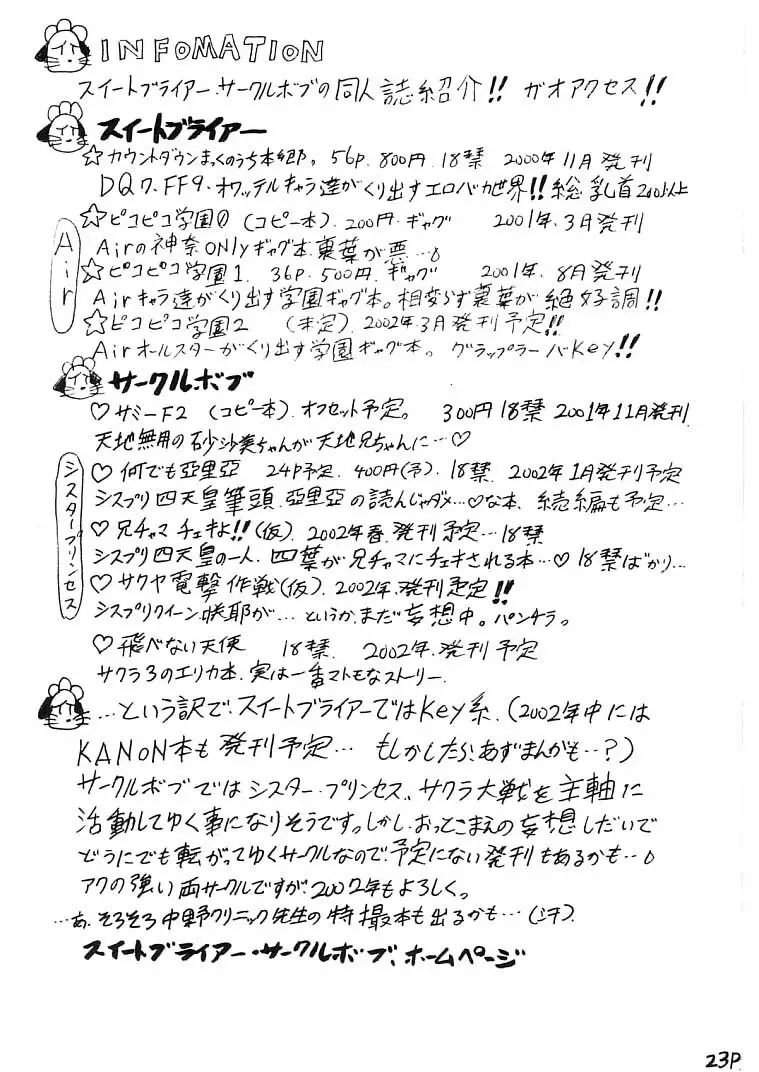 INFOMATION
スイートブライアー・サークルボブの同人誌紹介!! ガオアクセス!!
スイートブライアー
☆カウントダウンまっくのうち本郷。56P. 800円. 18禁 2000年11月発刊
DQ7.FF9.オワッテルキャラ達がくり出すエロバカ世界!!総乳首200以上
Air
☆ピコピコ学園0 (コピー本). 200円.ギャグ 2001年.3月発刊
Airの神奈ONlyギャグ本.裏葉が悪…。
☆ピコピコ学園1. 36P.500円.ギャグ 2001年.8月発刊
Airキャラ達がくり出す学園ギャグ本。相変らず裏葉が絶好調!!
☆ピコピコ学園2 (未定). 2002年.3月発刊予定!!
Airオールスターがくり出す学園ギャグ本。グラップラーバKey!!
サークルボブ
♡サミーF2 (コピー本).オフセット予定。 300円 18禁 2001年11月発刊
天地無用の砂沙美ちゃんが天地兄ちゃんに…♡
シスタープリンセス
♡何でも亞里亞 24P予定. 400円(予). 18禁. 2002年1月発刊予定
シスプリ四天皇筆頭.亞里亞の読んじゃダメ…♡な本、続編も予定…
♡兄チャマチェキよ!!(仮). 2002年春.発刊予定…18禁
シスプリ四天皇の一人.四葉が兄チャマにチェキされる本…♡ 18禁ばかり…
♡サクヤ電撃作戦(仮). 2002年.発刊予定!!
シスプリクイーン咲耶が…というか.まだ妄想中。パンチラ。
♡飛べない天使 18禁 2002年.発刊予定
サクラ3のエリカ本.実は一番マトモなストーリー.
…という訳で.スイートブライアーではKey系.(2002年中には
KANON本も発刊予定… もしかしたら、あずまんがも…?)
サークルボブではシスター・プリンセス.、サクラ大戦を主軸に
活動してゆく事になりそうです。しかし.おっとこまえの妄想しだいで
どうにでも転がってゆくサークルなので.予定にない発刊もあるかも…。
アクの強い両サークルですが.2002年もよろしく。
…あ.そろそろ中野クリニック先生の特撮本も出るかも…(汗).
スイートブライアー・サークルボブ、ホームページ
23P